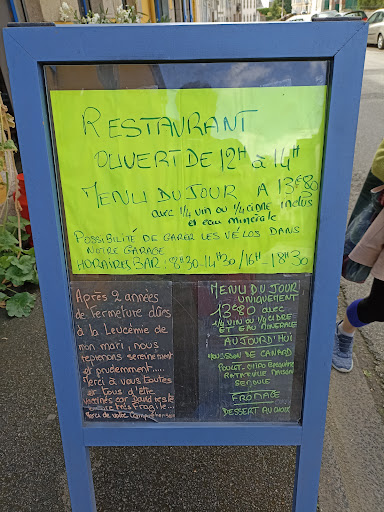 RESTAURANT
OUVERT DE 12H à 14H
MENU DU JOUR A 13€80
avec 1/4 vin ou 1/4 cidre inclus
et eau minérale
POSSIBILITÉ DE GARER LES VÉLOS DANS
NOTRE GARAGE
HORAIRES BAR: 8H30-14H30/16H-18H30
Après 2 années
de fermeture dûes
à la Leucémie de
mon mari, nous
reprenons sereinement
et prudemment.....
Merci à vous toutes
et tous d'être
vaccinés car David reste
très fragile...
Merci de votre compréhension
MENU DU JOUR
UNIQUEMENT
13€80 avec
1/4 VIN OU 1/4 CIDRE
ET EAU MINERALE
AUJOURD'HUI
MOUSSON DE CANARD
POULET
RATATOUILLE MAISON
SEMOULE
FROMAGE
DESSERT AU CHOIX